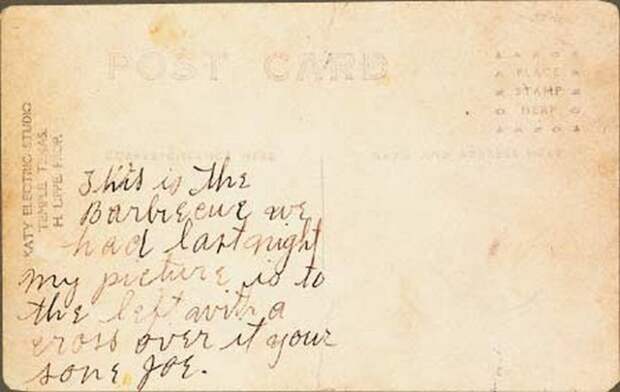 POST CARD
PLACE
STAMP
HERE
CORRESPONDENCE HERE
NAME AND ADDRESS HERE
KATY ELECTRIC STUDIO
TEMPLE TEXAS.
H. LIPPE
This is the
Barbecue we
had last night
my picture is to
the left with a
cross over it your
sone Joe.